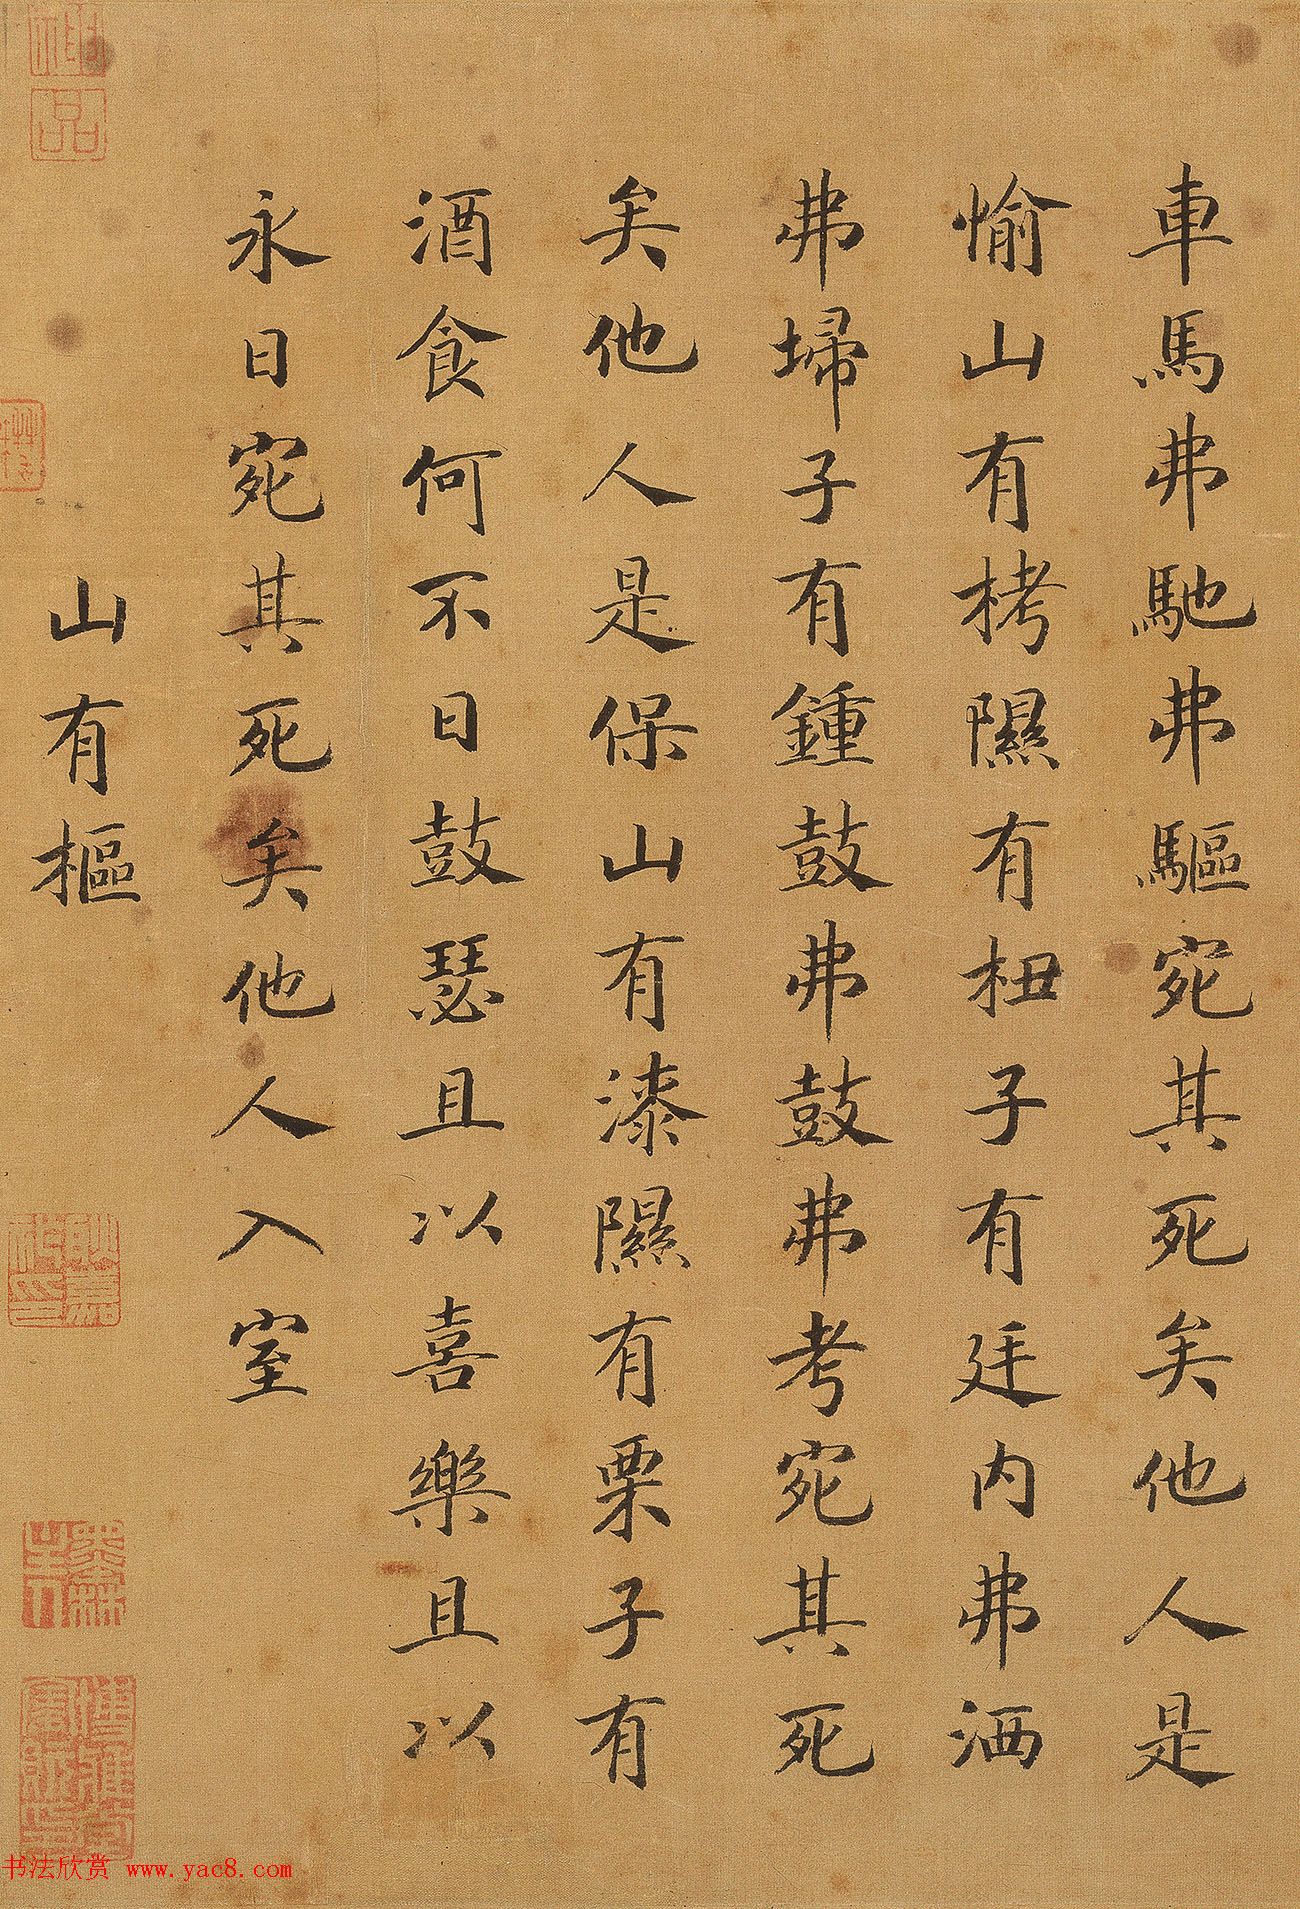 車馬弗馳弗驅宛其死矣他人是
愉山有栲隰有杻子有廷内弗洒
弗埽子有鍾鼓弗鼓弗考宛其死
矣他人是保山有漆隰有栗子有
酒食何不日鼓瑟且以喜樂且以
永日宛其死矣他人入室
山有樞
神品
書法欣赏 www.yac8.com